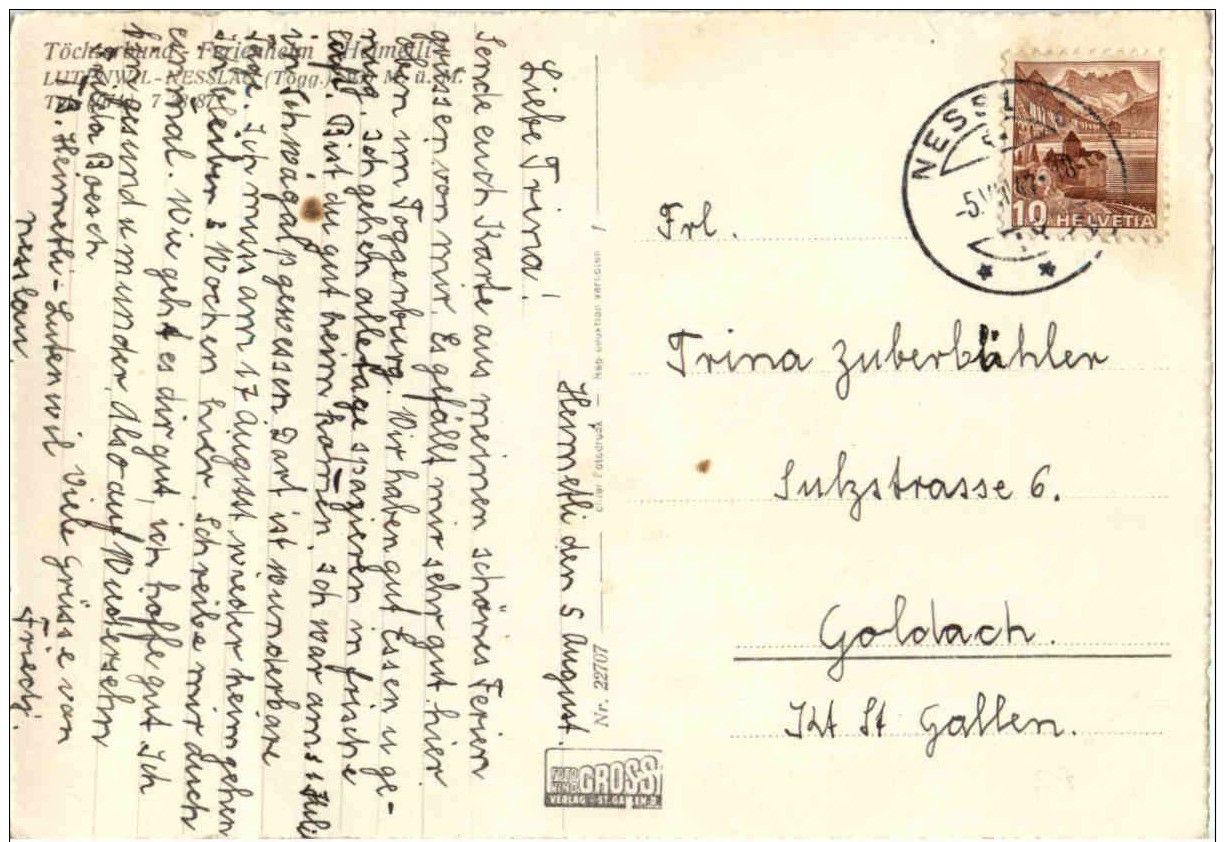 Töchterbund - Ferienheim Heimetli
LUTENWIL-NESSLAU (Togg.) M. ü. M.
Tel. 7 87
Heimetli den 5 August.
Liebe Trina!
Sende euch Karte aus meinen schönes Ferien
grüssen von mir. Es gefällt mir sehr gut hier
oben im Toggenburg. Wir haben gut Essen u ge-
nug. Ich gehen alle tage spazieren in frische
luft. Bist du gut heim komen. Ich war am 31 Juli
in Schwägalp gewessen Dart ist wunderbare
Ich muss am 17 August wieder heim gehen
2 Wochen hier. Schreibe mir duch
einmal. Wie geht es dir gut, ich hoffe gut. Ich
bin gesund u munder, also auf Widersehn
Frieda Boesch
Viele Grüsse von
T.B. Heimetli - Lutenwil
Friedy.
Nesslau
Nr. 22707
Foto
GROSS
VERLAG - ST. GALLEN.
NESSL
-5.VIII.47-18-
10 HELVETIA
Frl.
Trina Zuberbühler
Sulzstrasse 6.
Goldach.
Kt St Gallen.